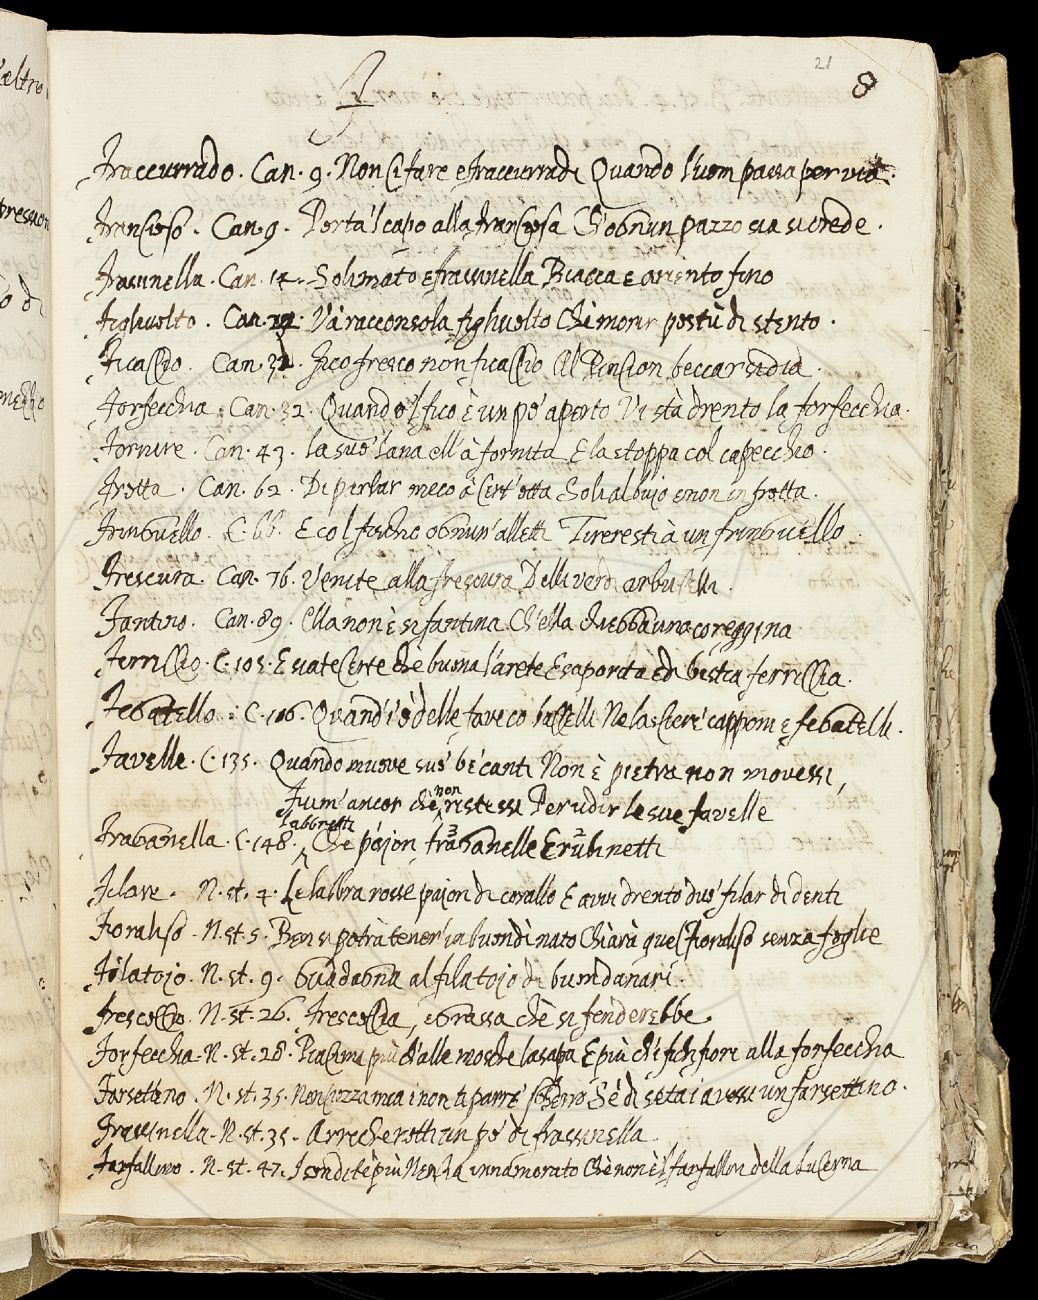 21
8
F
Fraccurrado. Can. 9. Non ci fare e fraccurradi Quando l'uom passa per via.
Francioso. Can. 9. Porta 'l capo alla franciosa Ch'ognun pazzo sia si crede.
Frassinella. Can. 14. Solimato e frassinella Biacca e ariento fino
Figliuolto. Can. 22. Và racconsola figliuolto Chè morir post'ù di stento.
Ficaccio. Can. 32. Fico fresco non ficaccio Al Pincion beccar si dia.
Forfecchia. Can. 32. Quando 'l fico è un po' aperto Vi stà drento la forfecchia.
Fornire. Can. 43. la suo' lana ell'à fornita E la stoppa col capecchio.
Frotta. Can. 62. Di parlar meco à cert'otta Soli al bujo e non in frotta.
Fringuello. C. 66. E col fischio ognun'alletti Tireresti à un fringuello.
Frescura. Can. 76. Venite alla frescura Delli verdi arbuscelli.
Fantino. Can. 89. Ella non è sì fantina Ch'ella debba una coreggina
Ferriccio. C. 105. E siate certe chè buma l'arete E saporita è di bestia ferriccia.
Fegatello. C. 106. Quand'i ò delle fave co' baccelli Ne lascierè capponi e fegatelli.
Favelle. C. 135. Quando muove suo' be' canti Non è pietra non movessi,
Fium' ancor chè non ristessi Per udir le sue favelle
labbretti
Fraganella. C. 148. Che pajon, fraganelle E rubinetti
Filare. N. st. 4. Le labbra rosse pajon di corallo E avvi drento duo' filar di denti
Fioraliso. N. st. 5. Ben si potrà tener' in buondì nato Chi arà quel fioraliso senza foglie
Filatojo. N. st. 9. Guadagna al filatojo di buon danari.
frescoccio. N. st. 26. Frescoccia, e grassa chè si fenderebbe.
Forfecchia. N. st. 28. Piacimi più ch'alle mosche la sapa E più ch'e' fichi fiori alla forfecchia
Farsettino. N. st. 35. Non uzza mica i non ti parre' scherro S'è di seta i avessi un farsettino.
Frassinella. N. st. 35. Arrecherotti un po' di frassinella.
Farfallino. N. st. 47. I son di tè più Nencia innamorato Chè non è 'l farfallin della lucerna